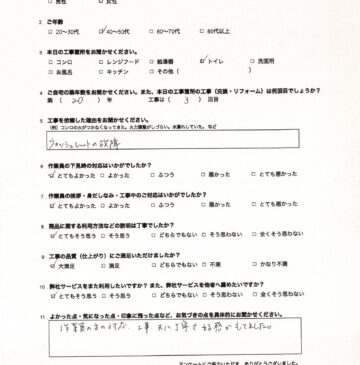 □ 男性 □ 女性
2 ご年齢
□ 20~30代 ☑ 40~50代 □ 60~70代 □ 80代以上
3 本日の工事箇所をお聞かせください。
□ コンロ □ レンジフード □ 給湯器 ☑ トイレ □ 洗面所
□ お風呂 □ キッチン □ その他 ( )
4 ご自宅の築年数をお聞かせください。また、本日の工事箇所の工事（交換・リフォーム）は何回目でしょうか？
築 ( 20 ) 年 工事は ( 3 ) 回目
5 工事を依頼した理由をお聞かせください。
（例）コンロの火がつかなくなってきた。火力調整がしづらい。水漏れしていた。など
ウォシュレットの故障
6 作業員の下見時の対応はいかがでしたか？
☑ とてもよかった □ よかった □ ふつう □ 悪かった □ とても悪かった
7 作業員の挨拶・身だしなみ・工事中のご対応はいかがでしたか？
☑ とてもよかった □ よかった □ ふつう □ 悪かった □ とても悪かった
8 商品に関する利用方法などの説明は丁寧でしたか？
☑ とてもそう思う □ そう思う □ どちらでもない □ そう思わない □ 全くそう思わない
9 工事の品質（仕上がり）にご満足いただけましたか？
☑ 大満足 □ 満足 □ どちらでもない □ 不満 □ かなり不満
10 弊社サービスをまた利用したいですか？また、弊社サービスを他者へ薦めたいですか？
☑ とてもそう思う □ そう思う □ どちらでもない □ そう思わない □ 全くそう思わない
11 よかった点・気になった点・印象に残った点など、お気づきの点を具体的にお聞かせください。
作業員の方の対応、工事 共に丁寧で好感がもてました。
アンケートにご協力いただき、ありがとうございました。